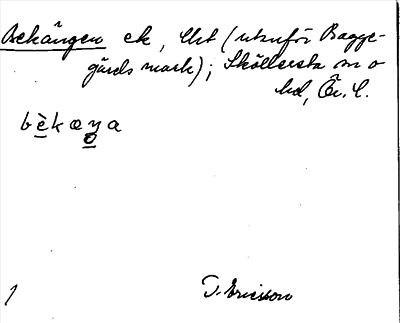 Bekången ek, Ust (utanför Bagge-
gårds mark); Sköllersta sn o
hd, Ör. l.
bèkæŋa
1
T. Ericsson